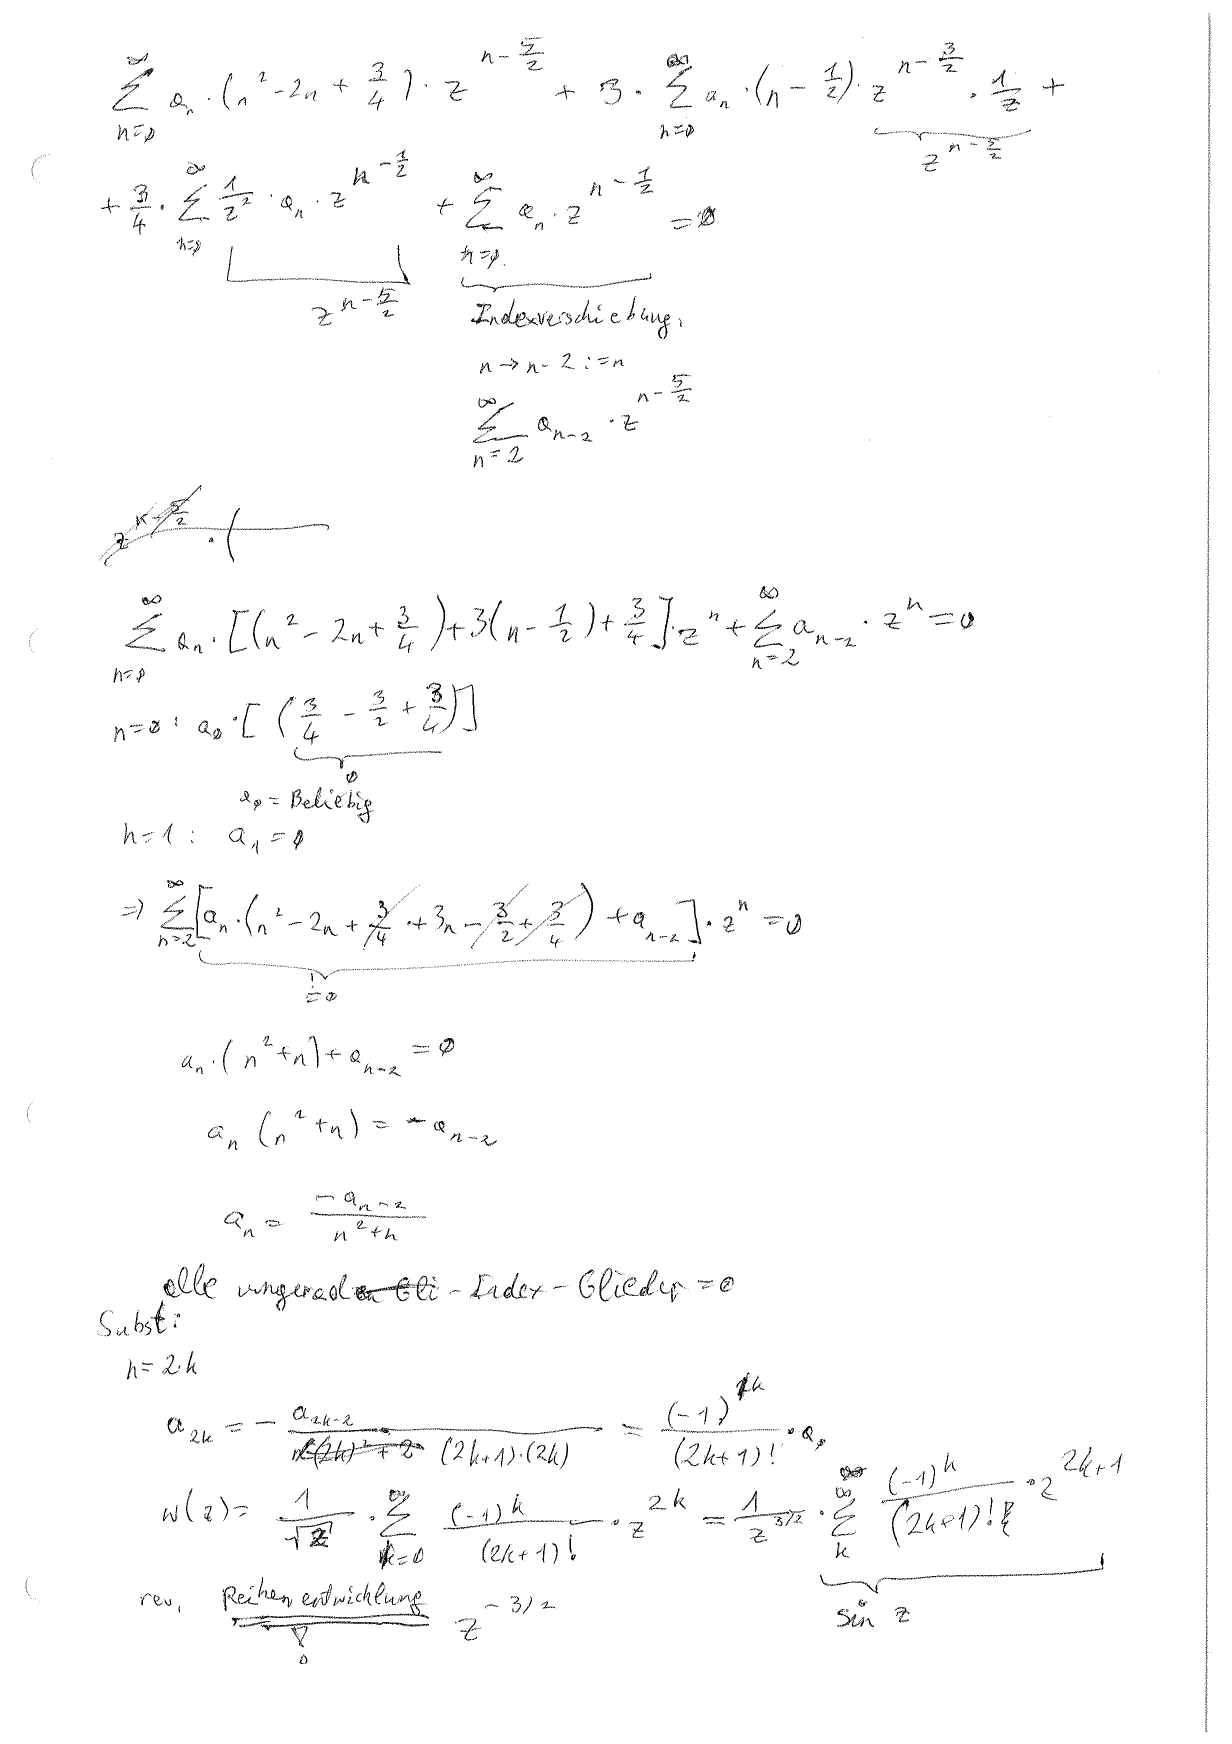 ∞ ∑ n=0 aₙ · (n² - 2n + 3/4) · z^(n - 5/2) + 3 · ∞ ∑ n=0 aₙ · (n - 1/2) · z^(n - 3/2) · 1/z +
z^(n - 5/2)
+ 3/4 · ∞ ∑ n=0 1/z² · aₙ · z^(n - 1/2) + ∞ ∑ n=0 aₙ · z^(n - 1/2) = 0
z^(n - 5/2) Indexverschiebung:
n → n - 2 := n
∞ ∑ n=2 aₙ₋₂ · z^(n - 5/2)
∞ ∑ n=0 aₙ · [(n² - 2n + 3/4) + 3(n - 1/2) + 3/4] · zⁿ + ∞ ∑ n=2 aₙ₋₂ · zⁿ = 0
n=0: a₀ · [(3/4 - 3/2 + 3/4)]
0
a₀ = Beliebig
n=1: a₁ = 0
⇒ ∞ ∑ n=2 [aₙ · (n² - 2n + 3/4 + 3n - 3/2 + 3/4) + aₙ₋₂] · zⁿ = 0
!
= 0
aₙ · (n² + n) + aₙ₋₂ = 0
aₙ (n² + n) = - aₙ₋₂
aₙ = -aₙ₋₂ / (n² + n)
alle ungerad - Index - Glieder = 0
Subst:
n = 2·k
a₂ₖ = - a₂ₖ₋₂ / (2k+1)·(2k) = (-1)^k / (2k+1)! · a₀
w(z) = 1/√z · ∞ ∑ k=0 (-1)^k / (2k+1)! · z^(2k) = 1/z^(3/2) · ∞ ∑ k (-1)^k / (2k+1)! · z^(2k+1)
rev. Reihenentwicklung z^(-3/2) sin z